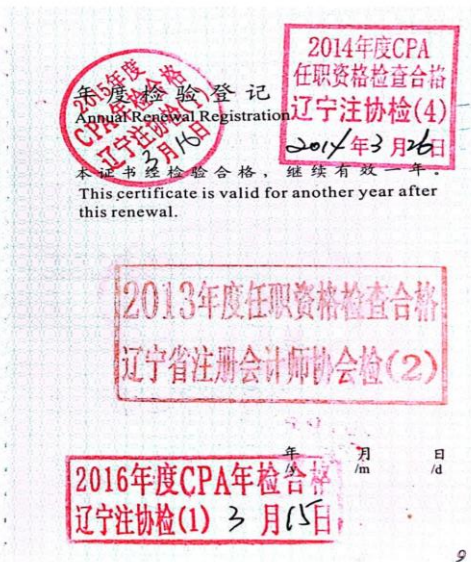 2014年度CPA
任职资格检查合格
辽宁注协检(4)
2014年3月26日
2015年度
CPA年检合格
辽宁注协检(1)
3月16日
年度检验登记
Annual Renewal Registration
本证书经检验合格，继续有效一年。
This certificate is valid for another year after
this renewal.
2013年度任职资格检查合格
辽宁省注册会计师协会检(2)
年 月 日
/y /m /d
2016年度CPA年检合格
辽宁注协检(1) 3月15日
9